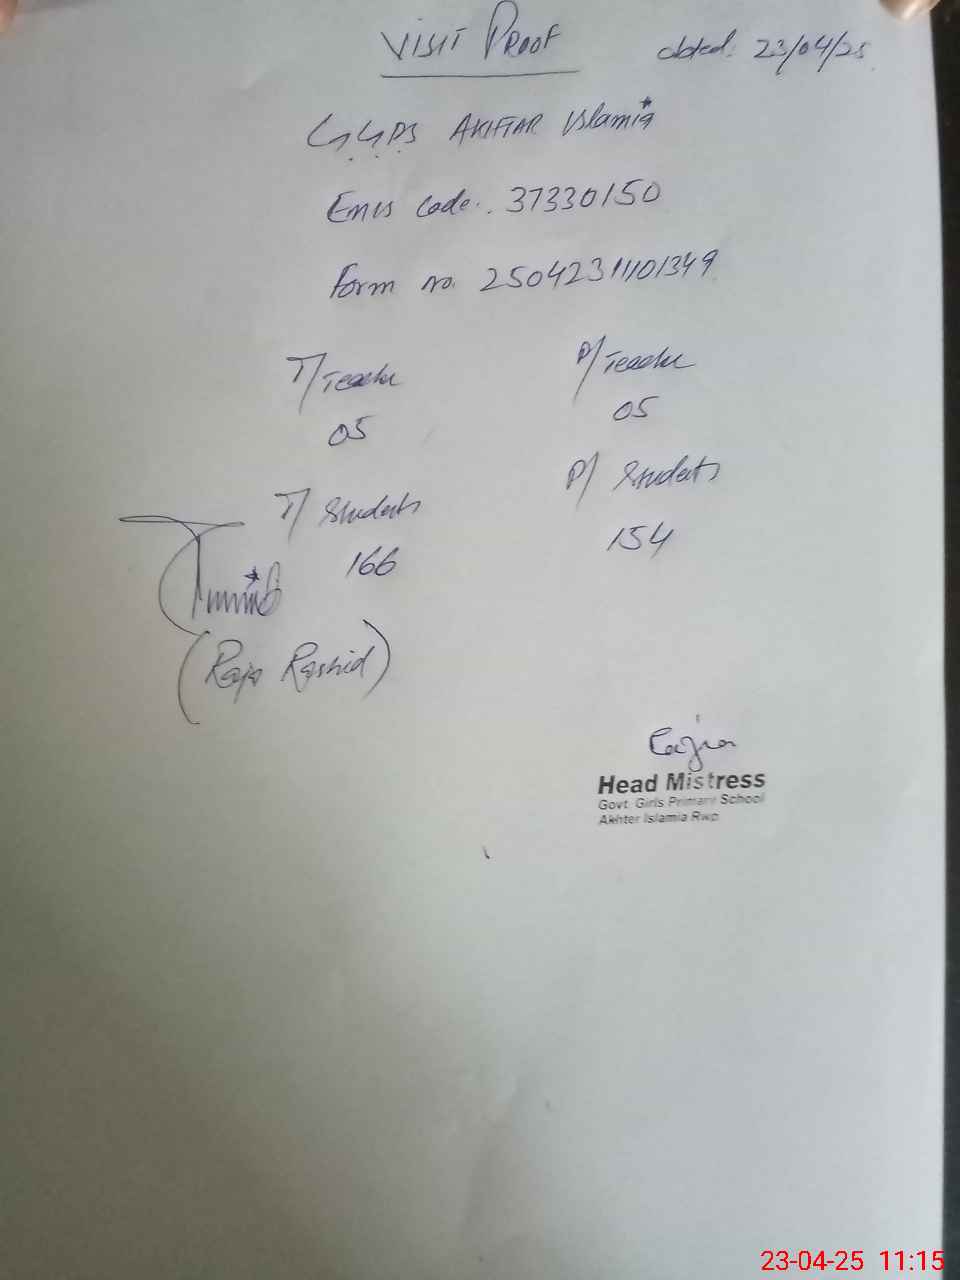 VISIT PROOF dated: 23/04/25
G.G.P.S AKHTAR Islamia
Emis Code. 37330150
Form no. 2504231101349
T/Teacher P/Teacher
05 05
T/Students P/Students
166 154
(Raja Rashid)
Head Mistress
Govt Girls Primary School
Akhter Islamia Rwp
23-04-25 11:15